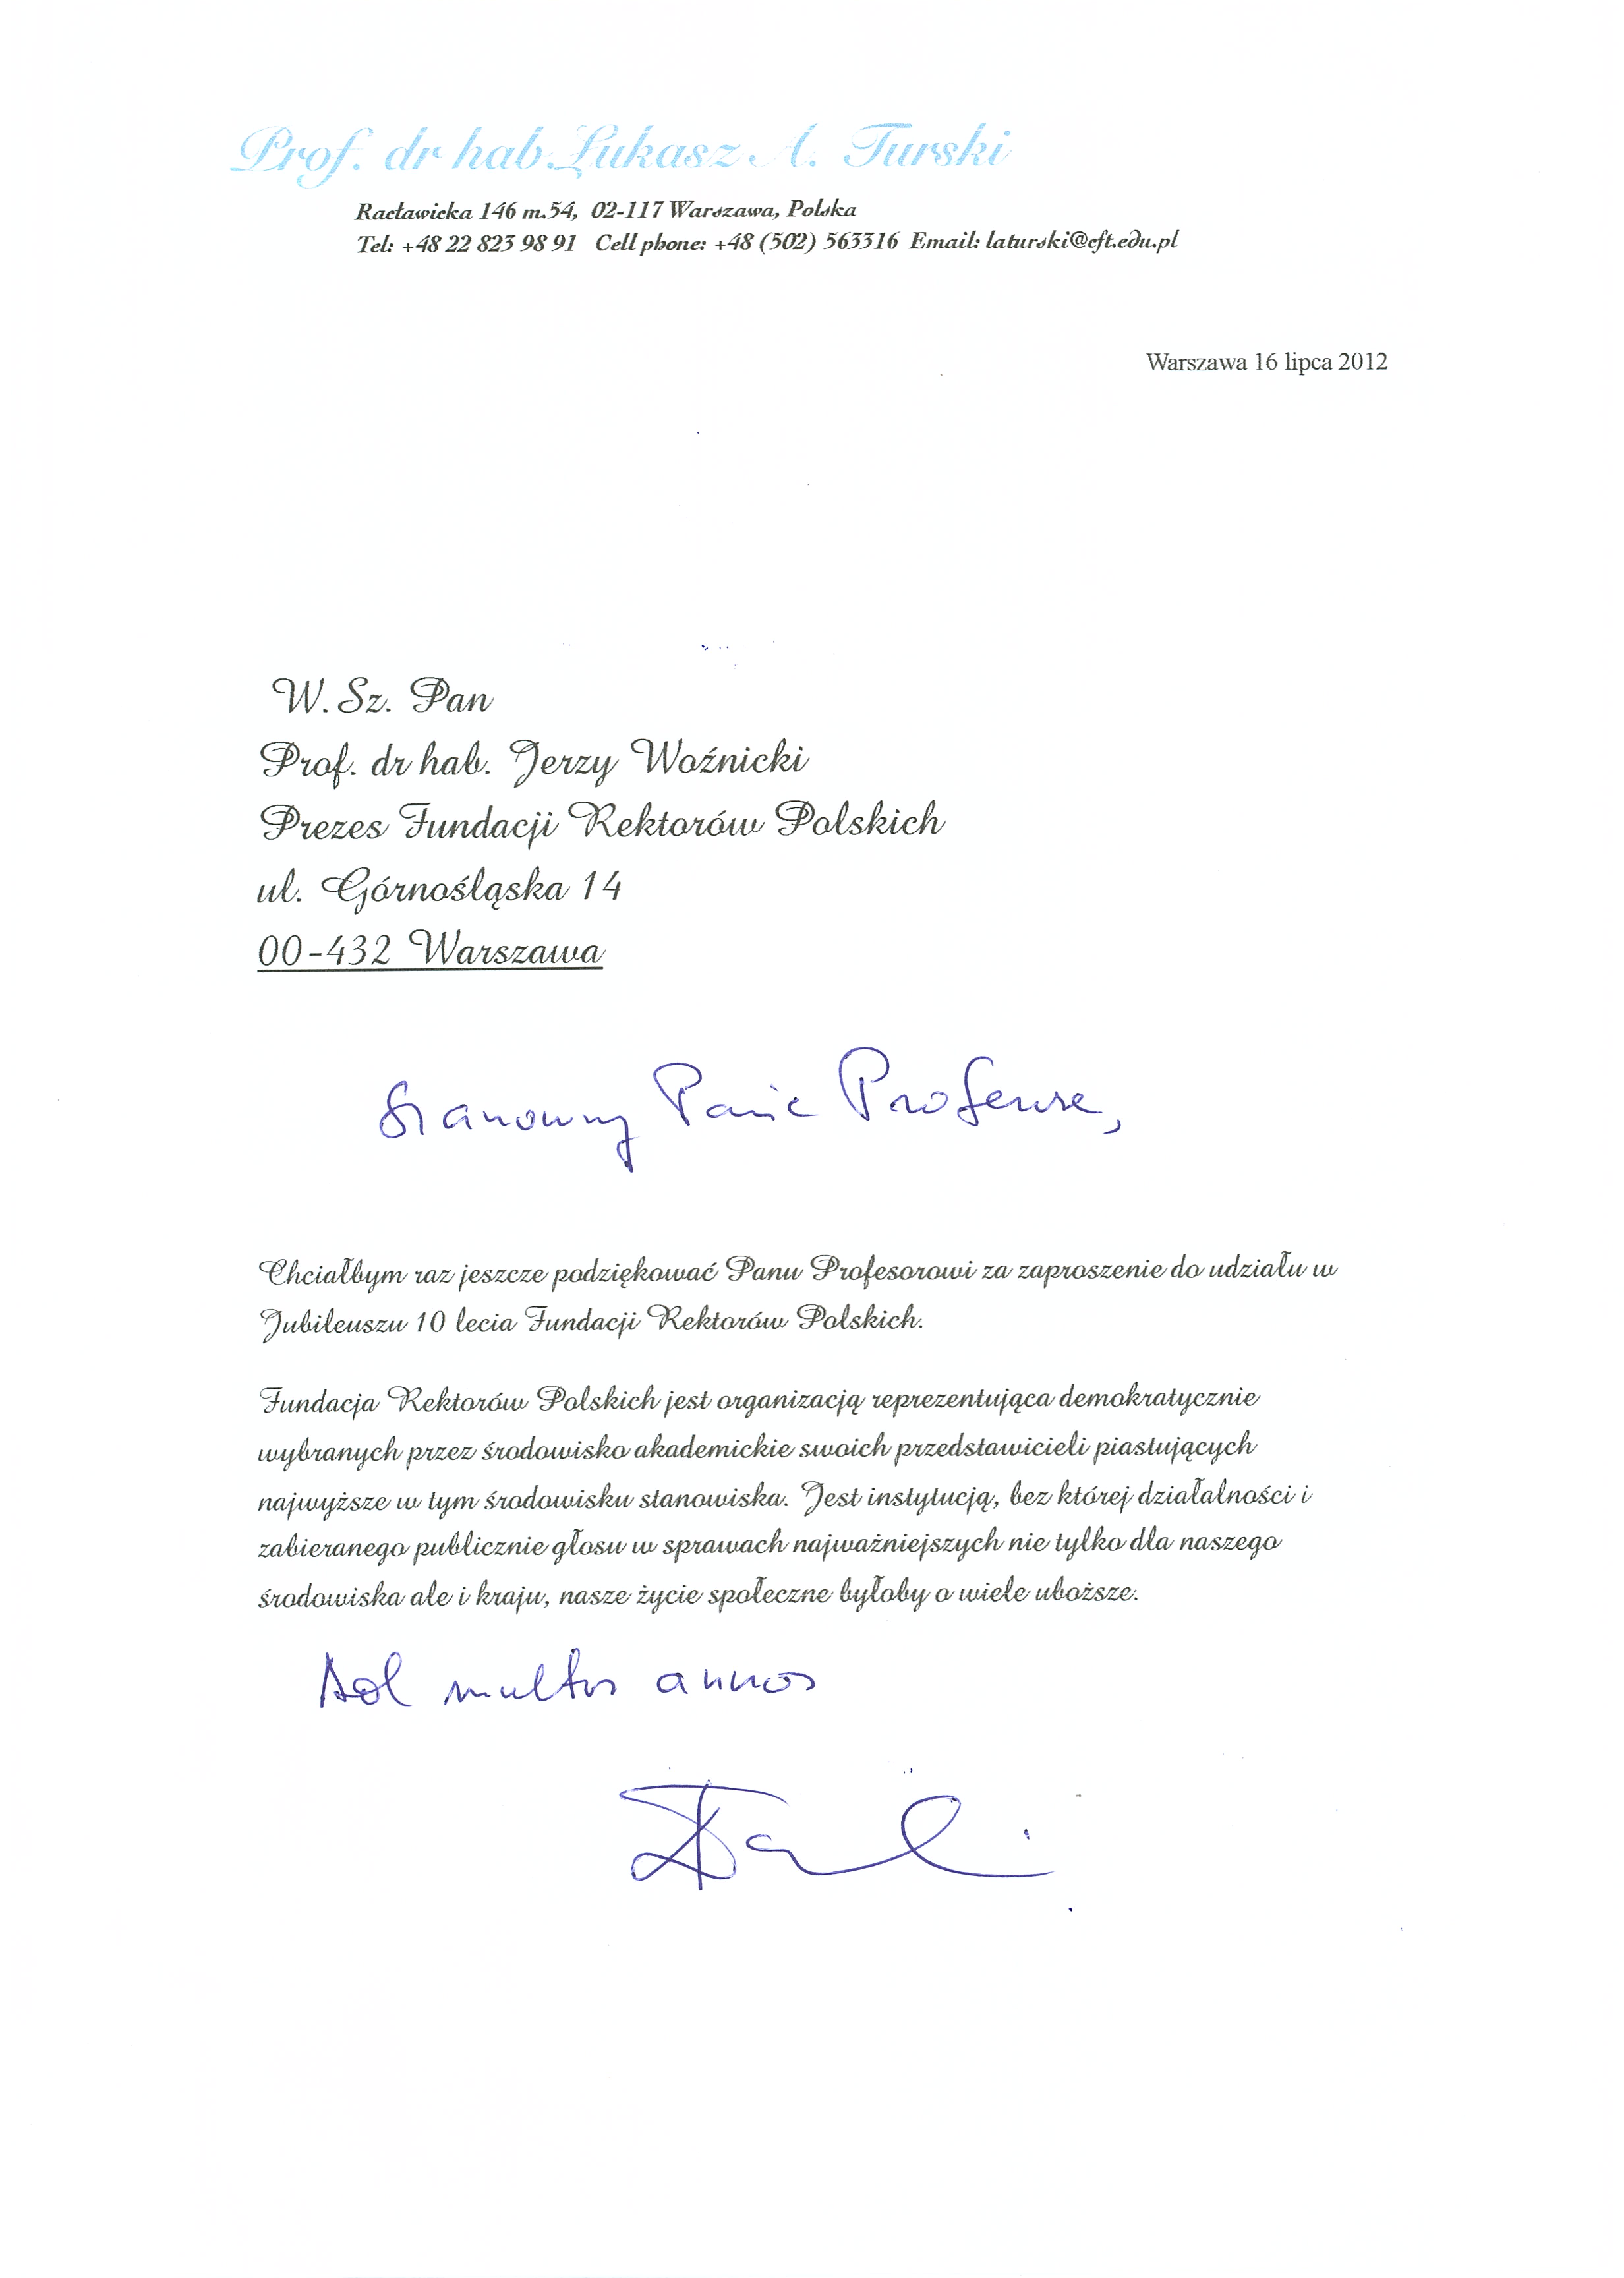 Prof. dr hab Łukasz A. Turski
Racławicka 146 m.54, 02-117 Warszawa, Polska
Tel: +48 22 823 98 91 Cell phone: +48 (502) 563316 Email: laturski@cft.edu.pl
Warszawa 16 lipca 2012
W. Sz. Pan
Prof. dr hab. Jerzy Woźnicki
Prezes Fundacji Rektorów Polskich
ul. Górnośląska 14
00-432 Warszawa
Szanowny Panie Profesorze,
Chciałbym raz jeszcze podziękować Panu Profesorowi za zaproszenie do udziału w
Jubileuszu 10 lecia Fundacji Rektorów Polskich.
Fundacja Rektorów Polskich jest organizacją reprezentująca demokratycznie
wybranych przez środowisko akademickie swoich przedstawicieli piastujących
najwyższe w tym środowisku stanowiska. Jest instytucją, bez której działalności i
zabieranego publicznie głosu w sprawach najważniejszych nie tylko dla naszego
środowiska ale i kraju, nasze życie społeczne byłoby o wiele uboższe.
Ad multos annos